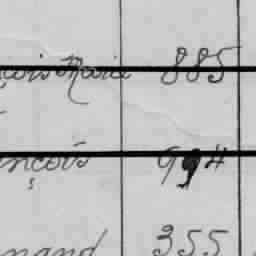 çois Marie 885
nçois 994
mand 355